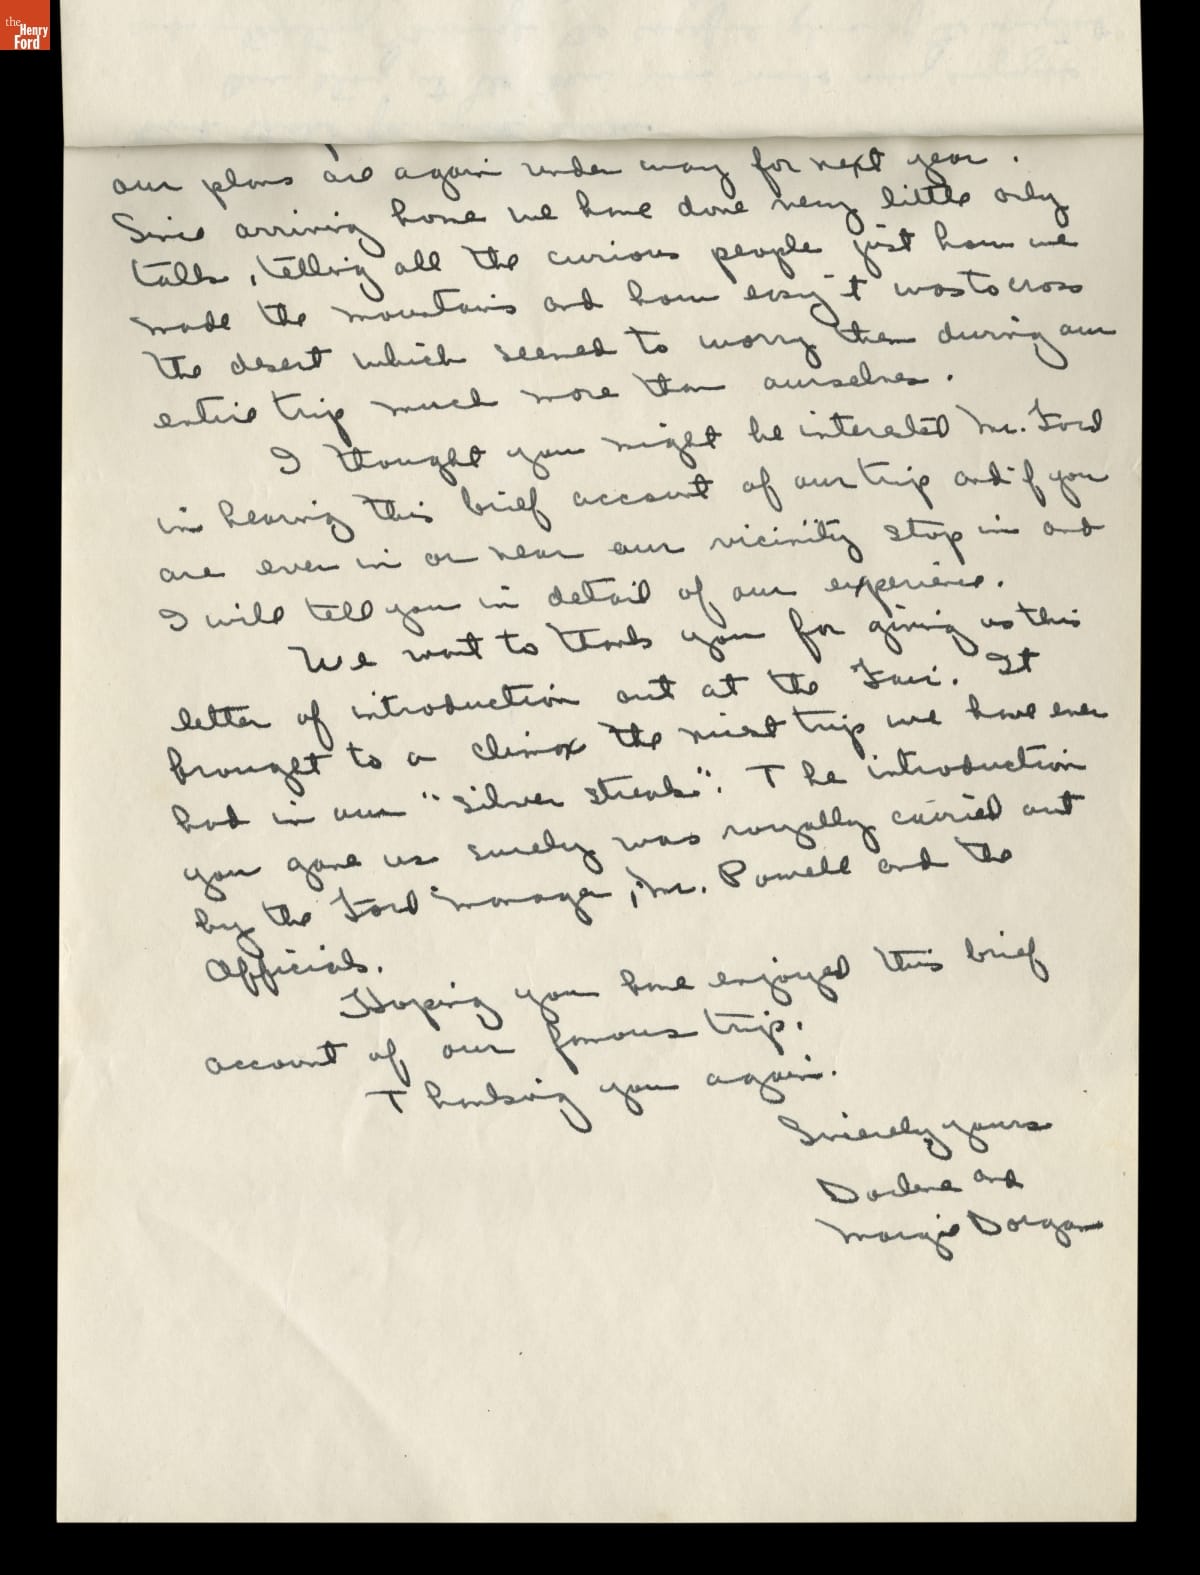 the
Henry
Ford
our plans are again under way for next year.
Since arriving home we have done very little only
talk, telling all the curious people just how we
made the mountains and how easy it was to cross
the desert which seemed to worry them during our
entire trip much more than ourselves.
I thought you might be interested Mr. Ford
in hearing this brief account of our trip and if you
are ever in or near our vicinity stop in and
I will tell you in detail of our experience.
We want to thank you for giving us this
letter of introduction out at the Fair. It
brought to a climax the nicest trip we have ever
had in our "silver streak". The introduction
you gave us surely was royally carried out
by the Ford Manager, Mr. Powell and the
Officials.
Hoping you have enjoyed this brief
account of our famous trip.
Thanking you again.
Sincerely yours
Darlene and
Margie Dorgan